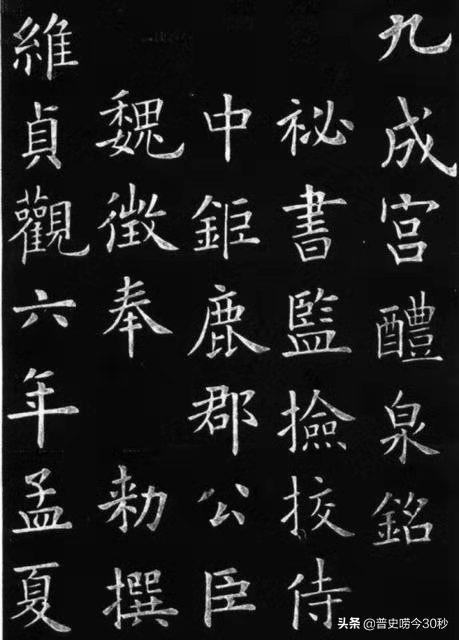 九成宫醴泉銘
祕書監撿挍侍
中鉅鹿郡公臣
魏徵奉 勑撰
維貞觀六年孟夏
头条 @普史唠今30秒